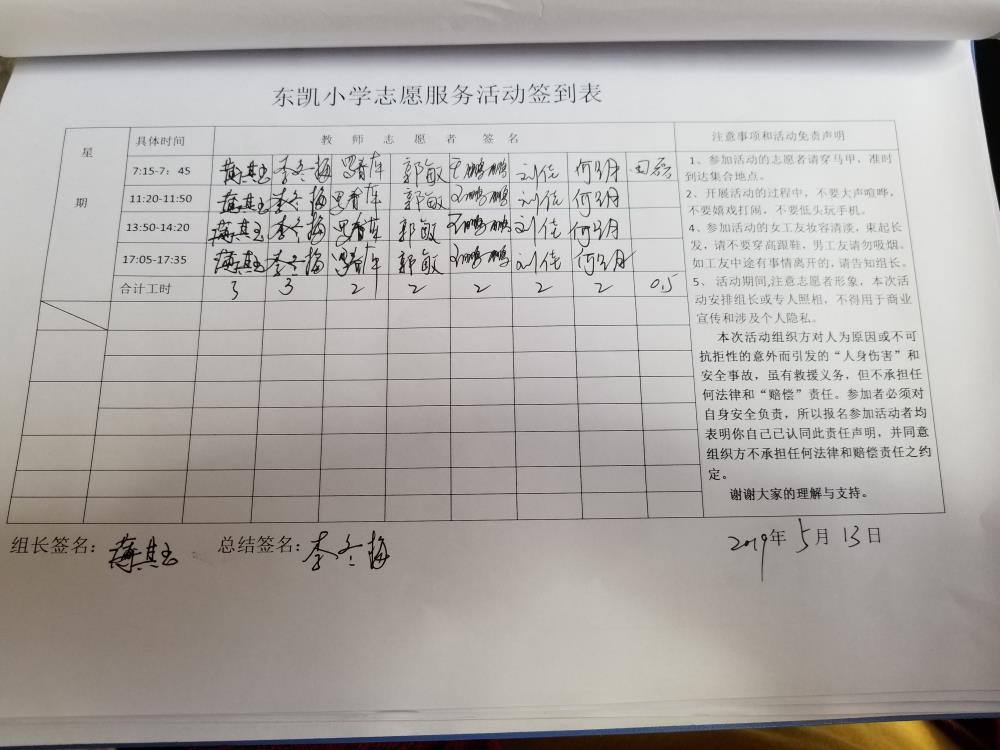 东凯小学志愿服务活动签到表
星期 具体时间 教师志愿者签名 注意事项和活动免责声明
7:15-7：45 李冬梅 郭敏 王鹏鹏 刘佳 何明 田磊
11:20-11:50 李冬梅 郭敏 王鹏鹏 刘佳
13:50-14:20 李冬梅 郭敏 王鹏鹏 刘佳
17:05-17:35 李冬梅 郭敏 王鹏鹏 刘佳
合计工时 3 3 2 2 2 2 2 0.5
1、参加活动的志愿者请穿马甲，准时
到达集合地点。
2、开展活动的过程中，不要大声喧哗，
不要嬉戏打闹，不要低头玩手机。
4、参加活动的女工友妆容清淡，束起长
发，请不要穿高跟鞋，男工友请勿吸烟。
如工友中途有事情离开的，请告知组长。
5、活动期间,注意志愿者形象，本次活
动安排组长或专人照相，不得用于商业
宣传和涉及个人隐私。
本次活动组织方对人为原因或不可
抗拒性的意外而引发的“人身伤害”和
安全事故，虽有救援义务，但不承担任
何法律和“赔偿”责任。参加者必须对
自身安全负责，所以报名参加活动者均
表明你自己已认同此责任声明，并同意
组织方不承担任何法律和赔偿责任之约
定。
谢谢大家的理解与支持。
组长签名： 总结签名：李冬梅 2019年5月13日